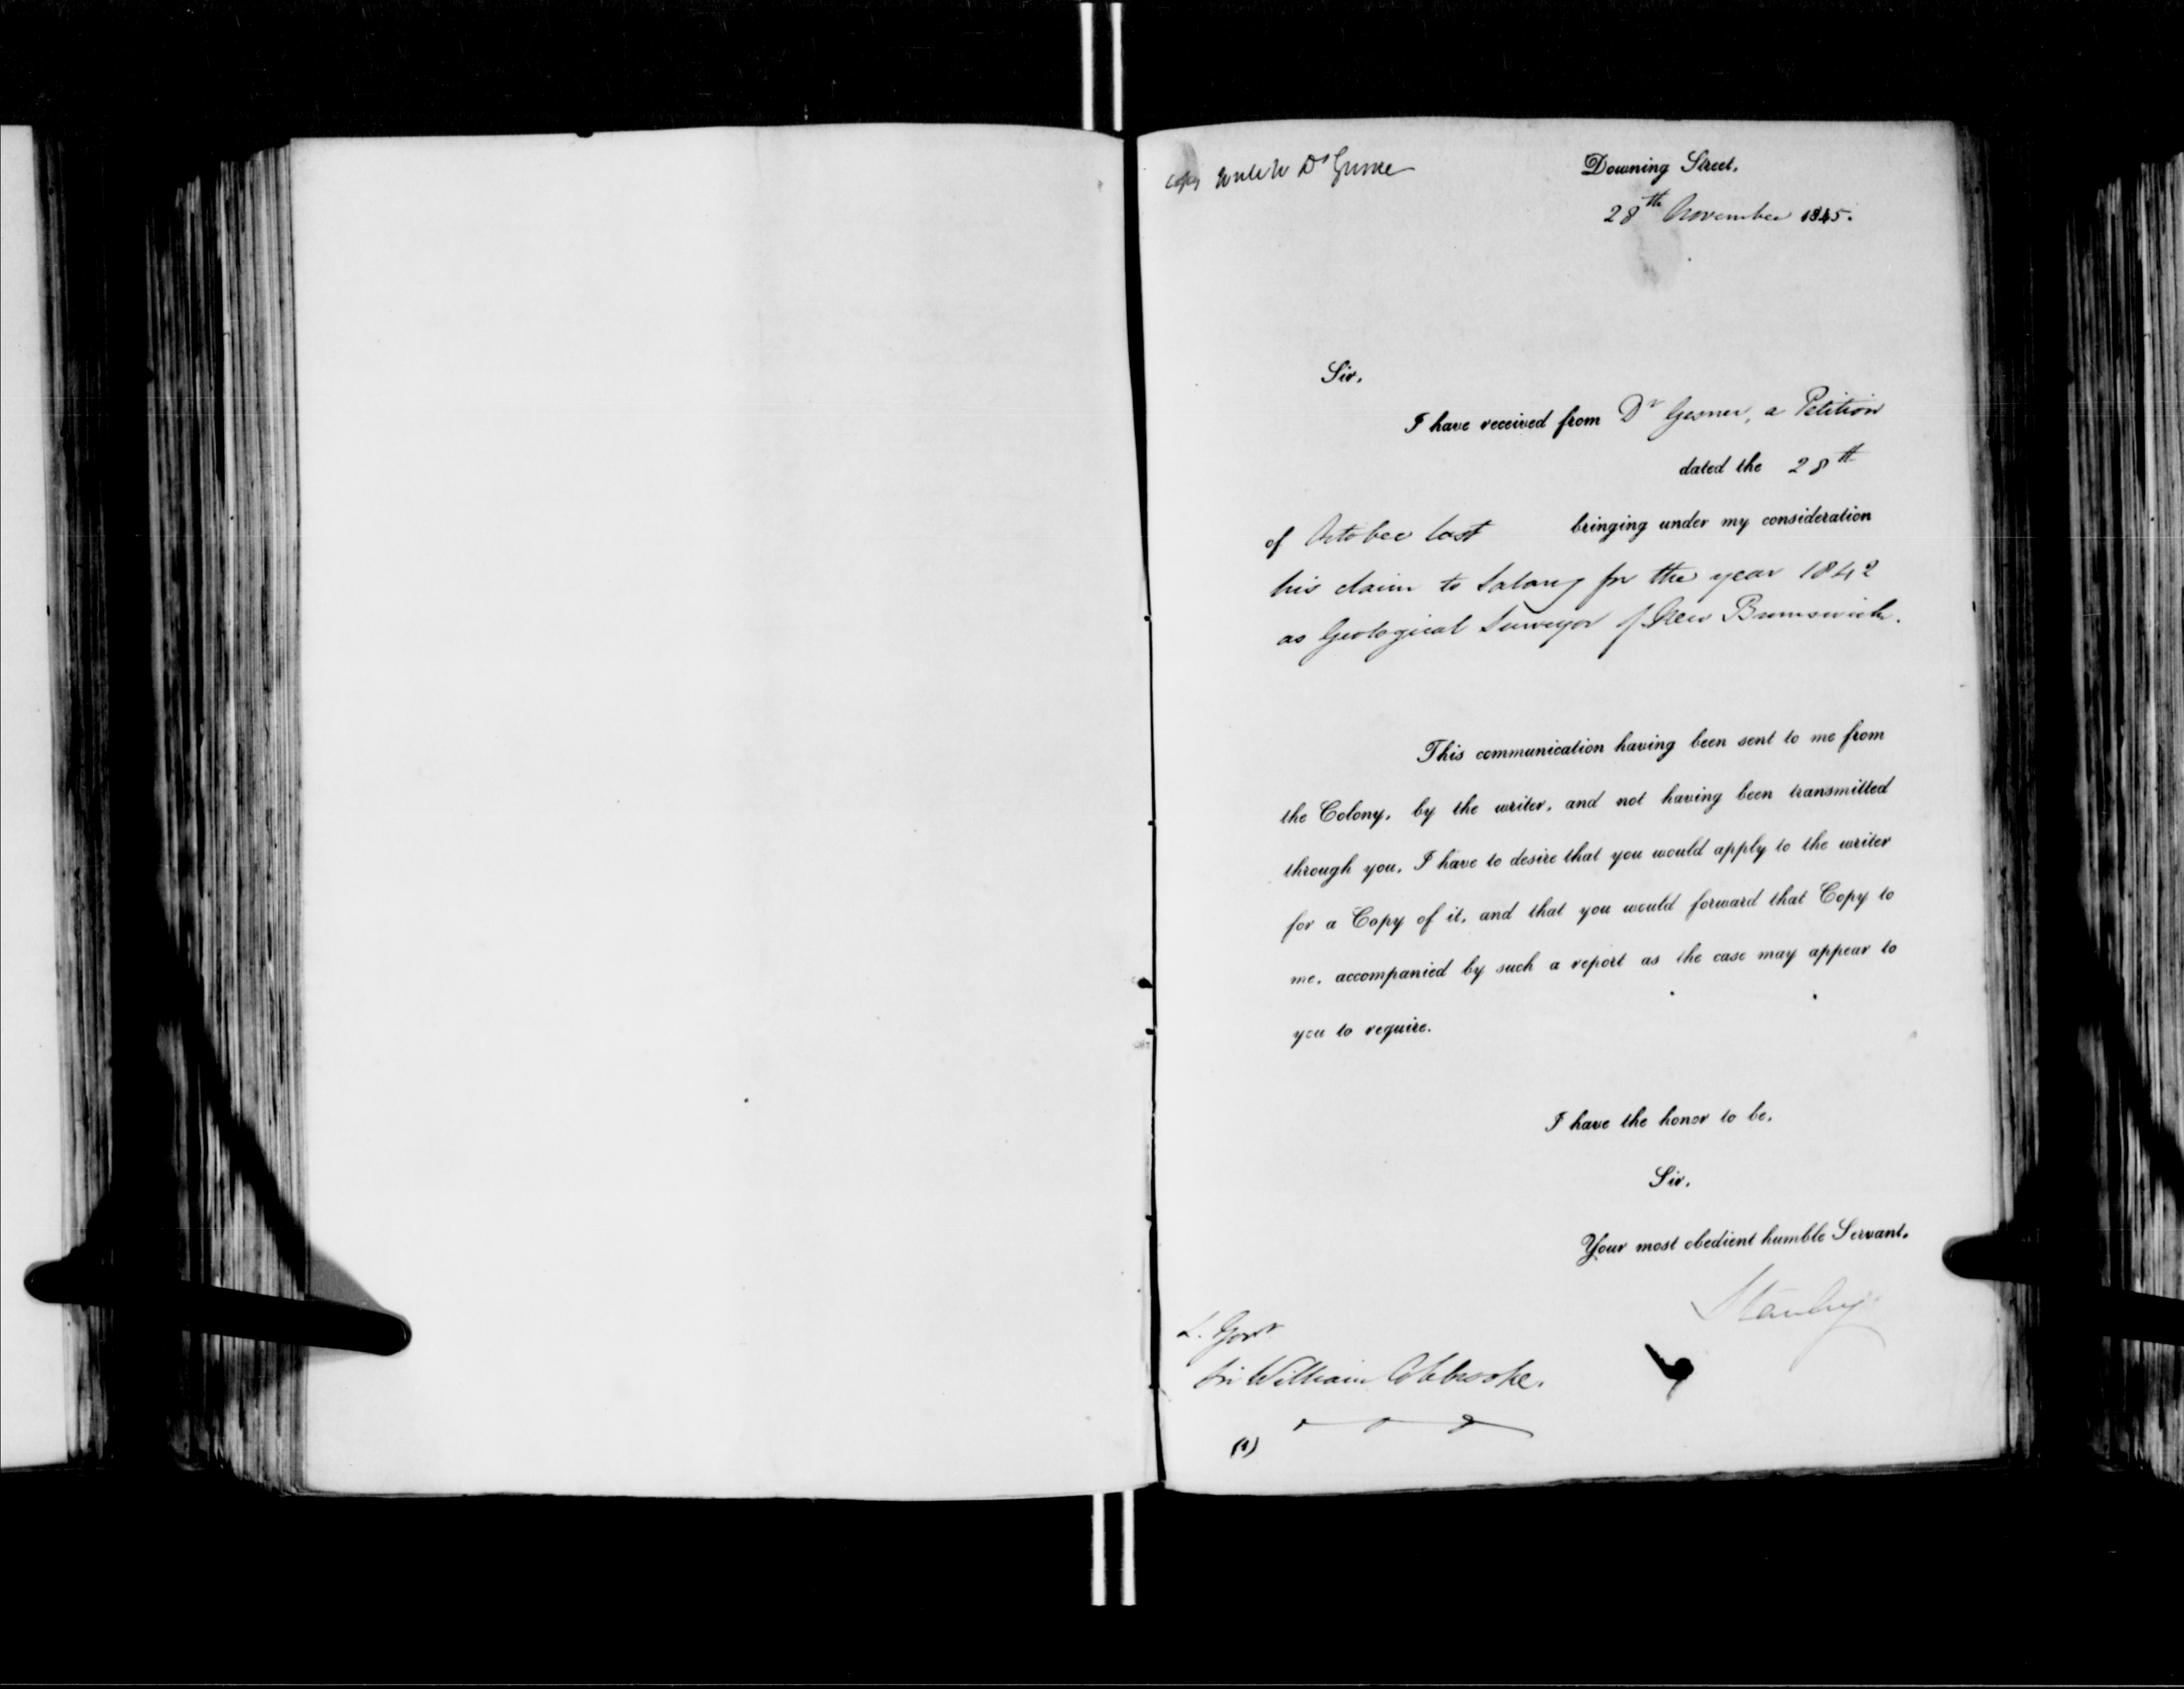 Copy
Downing Street,
28th November 1845.
Sir,
I have received from Dr Gesner, a Petition
dated the 28th
of October last bringing under my consideration
his claim to Salary for the year 1842
as Geological Surveyor of New Brunswick.
This communication having been sent to me from
the Colony, by the writer, and not having been transmitted
through you, I have to desire that you would apply to the writer
for a Copy of it, and that you would forward that Copy to
me, accompanied by such a report as the case may appear to
you to require.
I have the honor to be,
Sir,
Your most obedient humble Servant,
Stanley
L. Govr
Sir William Colebrooke.
(1)